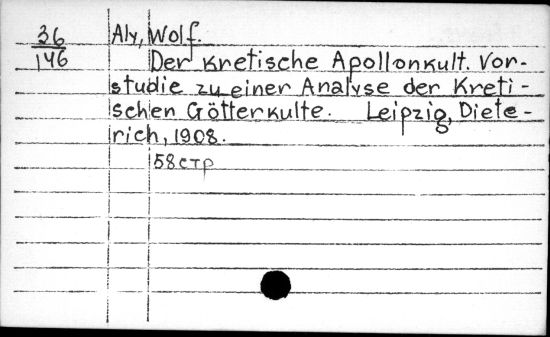 36
146
Aly, Wolf.
Der kretische Apollonkult. Vor-
studie zu einer Analyse der Kreti-
schen Götterkulte. Leipzig, Diete-
rich, 1908.
58 стр